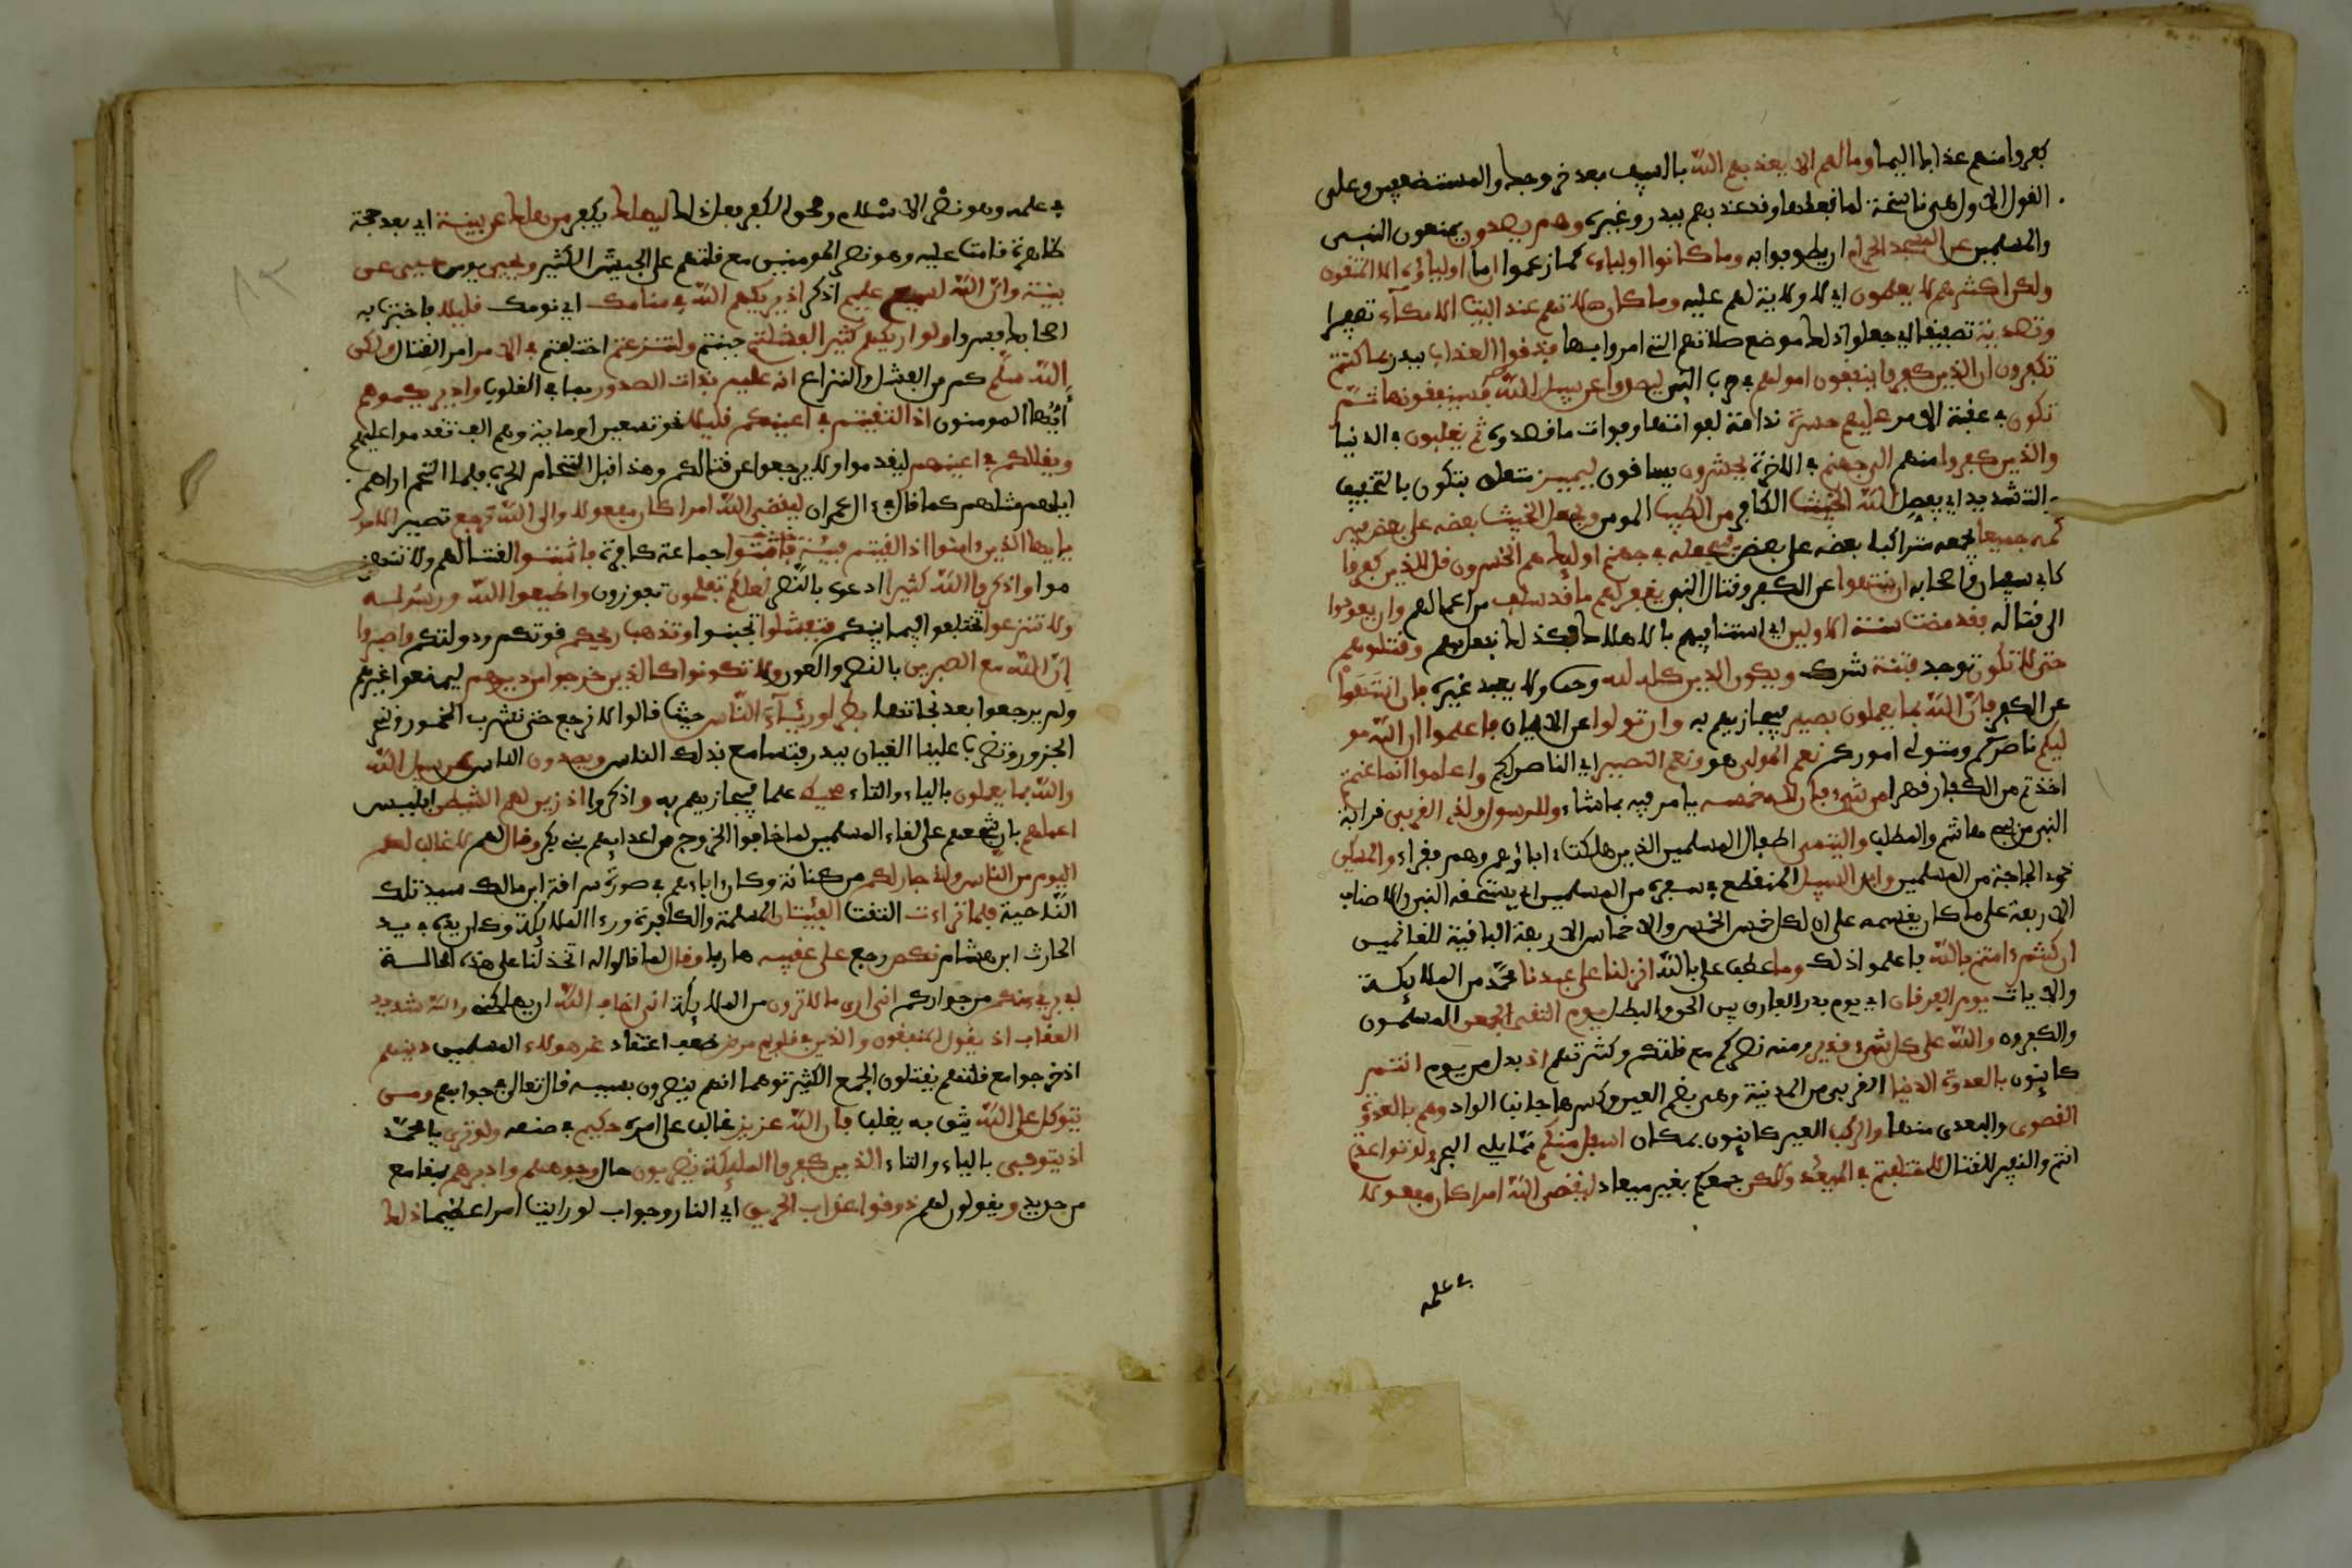 كفروا منهم عذابا اليما وما لهم الا يعذبهم الله بالسيف بعد خروجك والمستضعفين وعلى
القول الاول هي ناسخة لما قبلها وقد عذبهم ببدر وغيره وهم يصدون يمنعون النبي
والمسلمين عن المسجد الحرام ان يطوفوا به وما كانوا اولياءه كما زعموا ان ما اولياؤه الا المتقون
ولكن اكثرهم لا يعلمون اي لا ولاية لهم عليه وما كان صلاتهم عند البيت الا مكآء تصفيرا
وتصدية تصفيقا اي جعلوا ذلك موضع صلاتهم التي امروا بها فذوقوا العذاب ببدر بما كنتم
تكفرون ان الذين كفروا ينفقون اموالهم في حرب النبي ليصدوا عن سبيل الله فسينفقونها ثم
تكون في عاقبة الامر عليهم حسرة ندامة لفواتها وفوات ما قصدوه ثم يغلبون في الدنيا
والذين كفروا منهم الى جهنم في الاخرة يحشرون يساقون ليميز متعلق بتكون بالتخفيف
والتشديد اي يفصل الله الخبيث الكافر من الطيب المومن ويجعل الخبيث بعضه على بعض فير
كمه جميعا يجمعه متراكبا بعضه على بعض فيجعله في جهنم اولئك هم الخسرون قل للذين كفروا
كابي سفيان واصحابه ان ينتهوا عن الكفر وقتال النبي يغفر لهم ما قد سلف من اعمالهم وان يعودوا
الى قتاله فقد مضت سنت الاولين اي سنتنا فيهم بالاهلاك فكذلك نفعل بهم وقتلوهم
حتى لا تكون توجد فتنة شرك ويكون الدين كله لله وحده ولا يعبد غيره فان انتهوا
عن الكفر فان الله بما يعملون بصير فيجازيهم به وان تولوا عن الايمان فاعلموا ان الله مو
ليكم ناصركم ومتولي اموركم نعم المولى هو ونعم النصير اي الناصر لكم واعلموا انما غنمتم
اخذتم من الكفار قهرا من شيء فان لله خمسه يامر فيه بما شاء وللرسول ولذي القربى قرابة
النبي من بني هاشم والمطلب واليتمى اطفال المسلمين الذين هلكت ءاباؤهم وهم فقراء والمسكين
ذوي الحاجة من المسلمين وابن السبيل المنقطع في سفره من المسلمين اي يستحقه النبي والاصناف
الاربعة على ما كان يقسمه على ان لكل خمس الخمس والاخماس الاربعة الباقية للغانمين
ان كنتم ءامنتم بالله فاعلموا ذلك وما عطف على بالله انزلنا على عبدنا محمد من الملايكة
والايات يوم الفرقان اي يوم بدر الفارق بين الحق والبطل يوم التقى الجمعن المسلمون
والكفروه والله على كل شيء قدير ومنه نصركم مع قلتكم وكثرتهم اذ بدل من يوم انتم
كاينون بالعدوة الدنيا القربى من المدينة وهي بضم العين وكسرها جانب الواد وهم بالعدوة
القصوى والبعدى منها والركب العير كاينون بمكان اسفل منكم مما يلي البحر ولو تواعدتم
انتم والنفير للقتال لاختلفتم في الميعد ولكن جمعكم بغير ميعاد ليقضي الله امرا كان مفعولا
في علمه
في علمه وهو نصر الاسلام ومحق الكفر فعل ذلك ليهلك يكفر من هلك عن بينة اي بعد حجة
ظاهرة قامت عليه وهو نصر المومنين مع قلتهم على الجيش الكثير ويحيى يومن من حيي عن
بينة وان الله لسميع عليم اذكر اذ يريكهم الله في منامك اي نومك قليلا فاخبرت به
اصحابك فسروا ولو اريكهم كثيرا لفشلتم جبنتم ولتنزعتم اختلفتم في الامر امر القتال ولكن
الله سلم كم من الفشل والنزاع انه عليم بذات الصدور بما في القلوب واذ يريكموهم
أيها المومنون اذ التقيتم في اعينكم قليلا نحو سبعين او ماية وهم الف لتقدموا عليهم
ويقللكم في اعينهم ليقدموا ولا يرجعوا عن قتالكم وهذا قبل التحام الحرب فلما التحم اراهم
اياهم مثليهم كما في ءال عمران ليقضي الله امرا كان مفعولا والى الله ترجع تصير الامور
يايها الذين ءامنوا اذا لقيتم فيئة فاثبتوا جماعة كافرة فاثبتوا لقتالهم ولا تنهز
موا واذكروا الله كثيرا ادعوه بالنصر لعلكم تفلحون تفوزون واطيعوا الله ورسوله
ولا تنزعوا تختلفوا فيما بينكم فتفشلوا تجبنوا وتذهب ريحكم قوتكم ودولتكم واصبروا
ان الله مع الصبرين بالنصر والعون ولا تكونوا كالذين خرجوا من ديرهم ليمنعوا غيرهم
ولم يرجعوا بعد نجاتها بطرا ورئآء الناس حيث قالوا لا نرجع حتى نشرب الخمور وننحر
الجزور وتضرب علينا القيان ببدر فيتسامع بذلك الناس ويصدون الناس عن سبيل الله
والله بما يعملون بالياء والتاء محيط علما فيجازيهم به واذكروا اذ زين لهم الشيطن ابليس
اعملهم بان شجعهم على لقاء المسلمين لما خافوا الخروج من اعدايهم بني بكر وقال لهم لا غالب لكم
اليوم من الناس واني جار لكم من كنانة وكان اتاهم في صورة سراقة ابن مالك سيد تلك
الناحية فلما تراءت التقت الفيئتان المسلمة والكافرة وراى الملايكة وكان يده في يد
الحارث ابن هشام نكص رجع على عقبيه هاربا وقال لما قالوا له اتخذلنا على هذه الحالة
اني بريء منكم من جواركم اني ارى ما لا ترون من الملايكة اني اخاف الله ان يهلكني والله شديد
العقاب اذ يقول المنفقون والذين في قلوبهم مرض ضعف اعتقاد غر هولاء المسلمين دينهم
اذ خرجوا مع قلتهم يقتلون الجمع الكثير توهما انهم ينصرون بسببه قال تعالى في جوابهم ومن
يتوكل على الله يثق به يغلب فان الله عزيز غالب على امره حكيم في صنعه ولو ترى يا محمد
اذ يتوفى بالياء والتاء الذين كفروا المليكة يضربون حال وجوههم وادبرهم بمقامع
من حديد ويقولون لهم ذوقوا عذاب الحريق اي النار وجواب لو رايت امرا عظيما ذلك